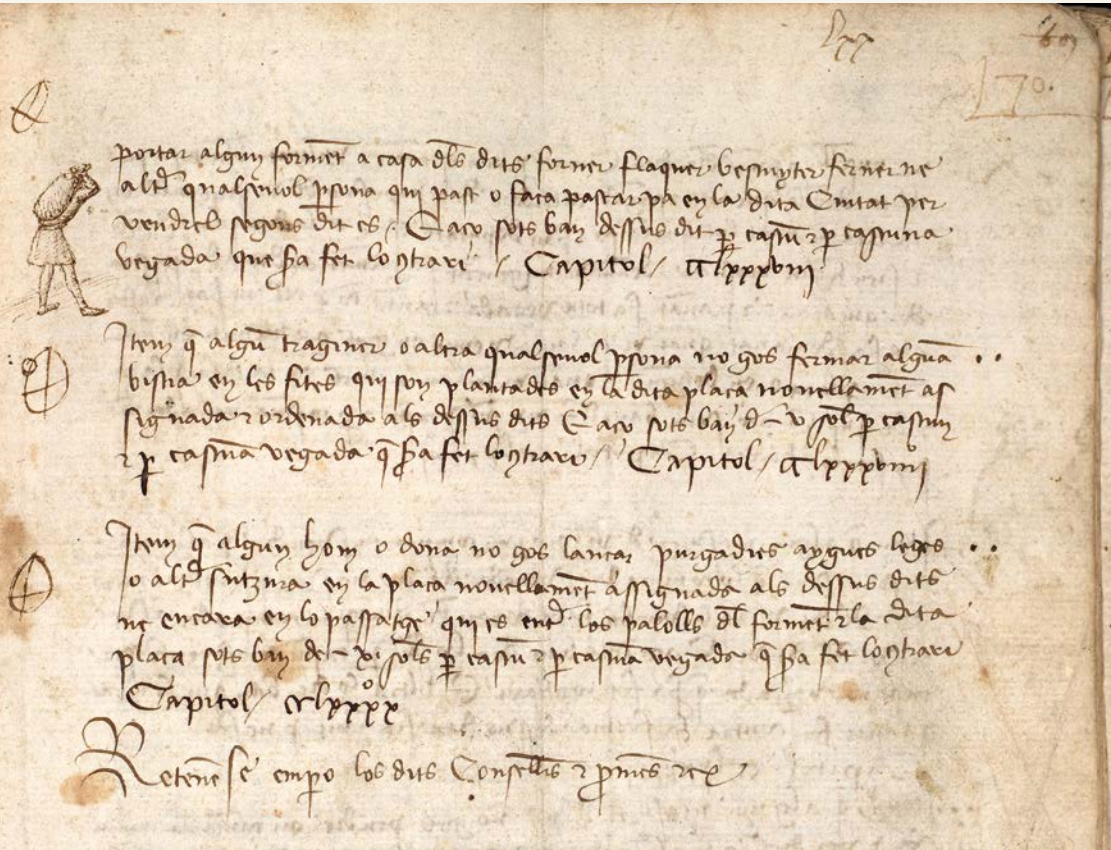 Lxx
170.
portar algun formēt a casa dls dits forner flaquer bescuyter ferner ne
altr̄ qualseuol psona qui past o faca pastar pa en la dita Ciutat per
vendrel segons dit es / E aco sots ban dessus dit p cascū ⁊ p cascuna
vegada que sia fet lo contrari / Capitol / CClxxxviii
Item q̄ algū traginer o altra qualseuol psona no gos fermar alguā
bistia en les fites qui son plantades en la dita placa nouellamēt as
signada ⁊ ordenada als dessus dits E aco sots ban d v sol p cascun
⁊ p cascūa vegada q̄ sia fet lo contrari / Capitol / CClxxxviiii
Item q̄ algun hom o dona no gos lancar purgadies aygues leges
o altr̄ sutzura en la placa nouellamēt assignada als dessus dits
ne encara en lo passatge qui es entr̄ los palolls dl formēt ⁊ la dita
placa sots ban de xi sols p cascū ⁊ p cascūa vegada q̄ sia fet lo contrari
Capitol / CClxxxx
Retenēse empo los dits Consellēs ⁊ pmēs ⁊cx